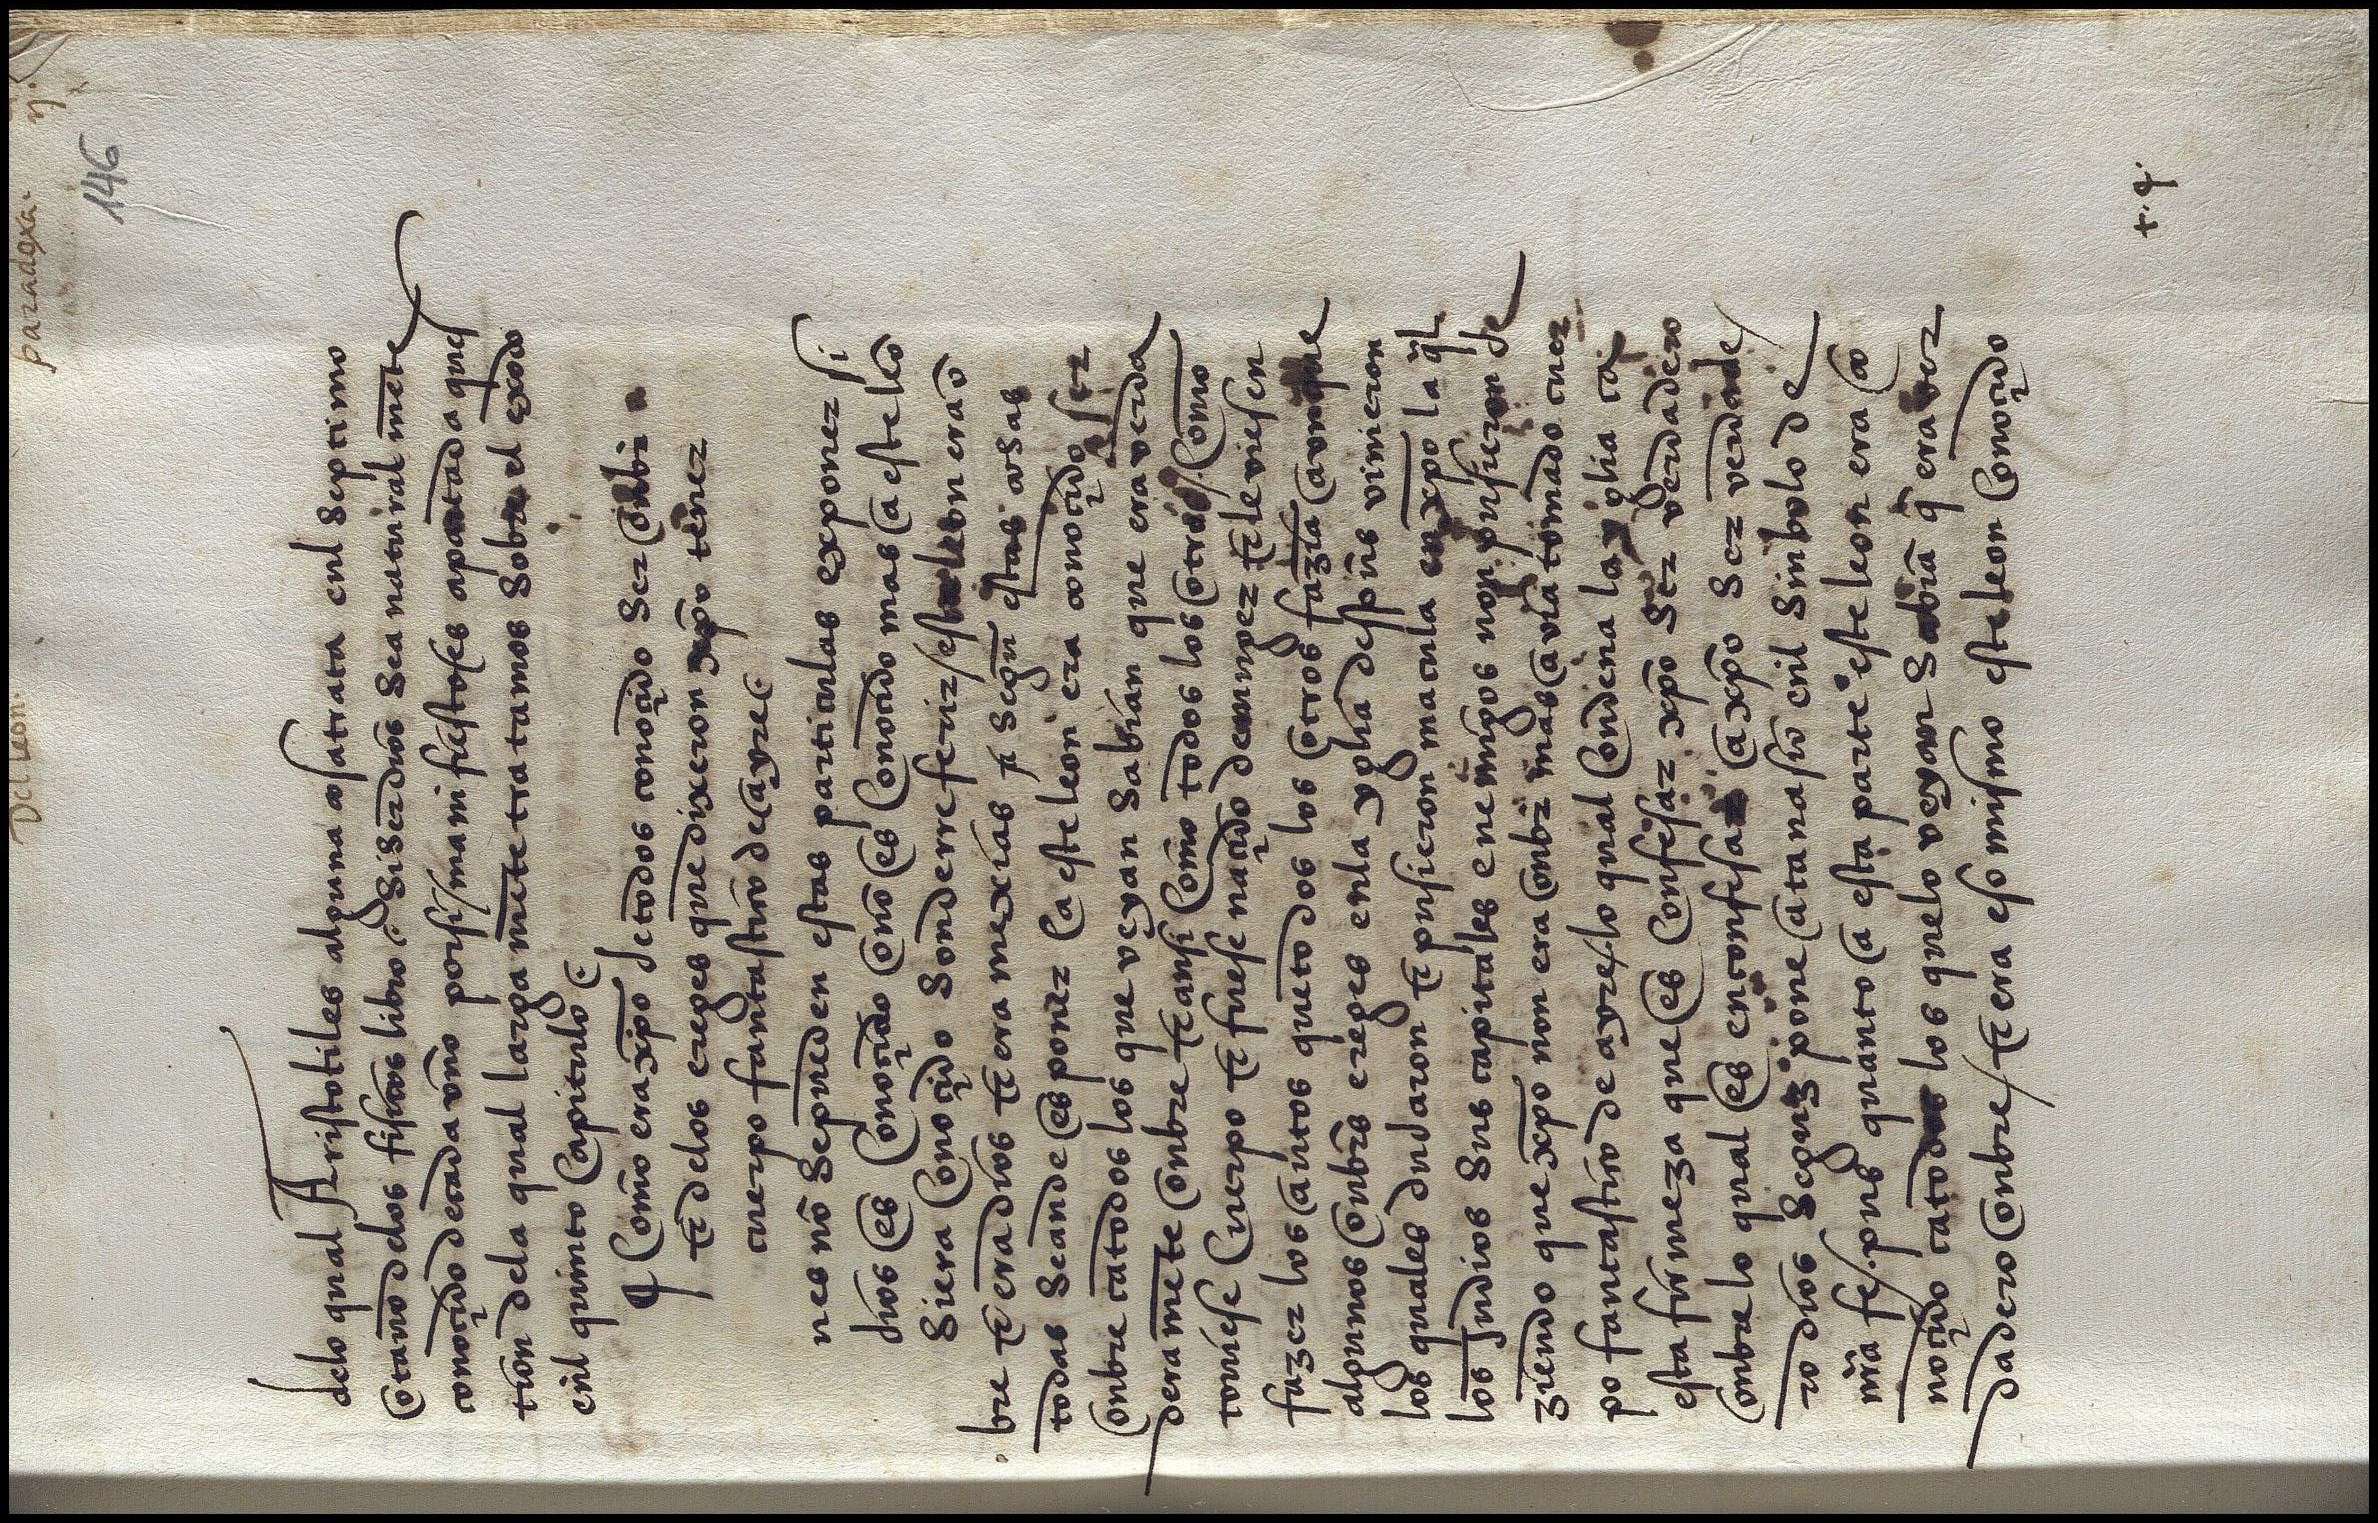 Del leon. paradoxa. ij.
146
delo qual Aristotiles alguna cosa trata enl septimo
o otauo delos fisicos libro. Si ser dios sea natural mēte
conoçido de cada vno por si / manifiesto es apartada ques
tion dela qual larga mēte tratamos sobre el exodo
enl quinto capitulo
¶ Como era xp̄o de todos conoçido ser onbr
ꞇ delos ereges que dixeron xp̄o tener
cuerpo fantastico de ayre
nes no se pueden estas particulas exponer si
dios es conoçido o no es conoçido mas a este leō
si era conoçido son de rreferir / este leon era ō
bre ꞇ era dios ꞇ era mexias ꞇ segū estas cosas
todas se an de esponer a este leon era conoçido ser
onbre ca todos los que veyan sabian que era verda
dera mēte onbre ꞇ ansi como todos los otros / como
touiese cuerpo ꞇ fuese naçido de muger ꞇ le viesen
fazer los autos que todos los otros fazia aonque
algunos onbrs ereges enla yglia despūs vinieron
los quales dudaron ꞇ pusieron macula en xp̄o la q̄l
los Judios sus capitales enemigos non pusieron de
ziendo que xp̄o non era onbr mas auia tomado cuer
po fantastico de ayre / lo qual condena la yglia ca
esta firmeza que es confesar xp̄o ser verdadero
onbre lo qual es en confesar a xp̄o ser verdade
ro dios segun pone atanasio enl sinbolo de
nr̄a fe / pus quanto a esta parte este leon era co
noçido ca todos los que lo veyan sabiā q̄ era ver
dadero onbre / ꞇ era eso mismo este leon conoçido